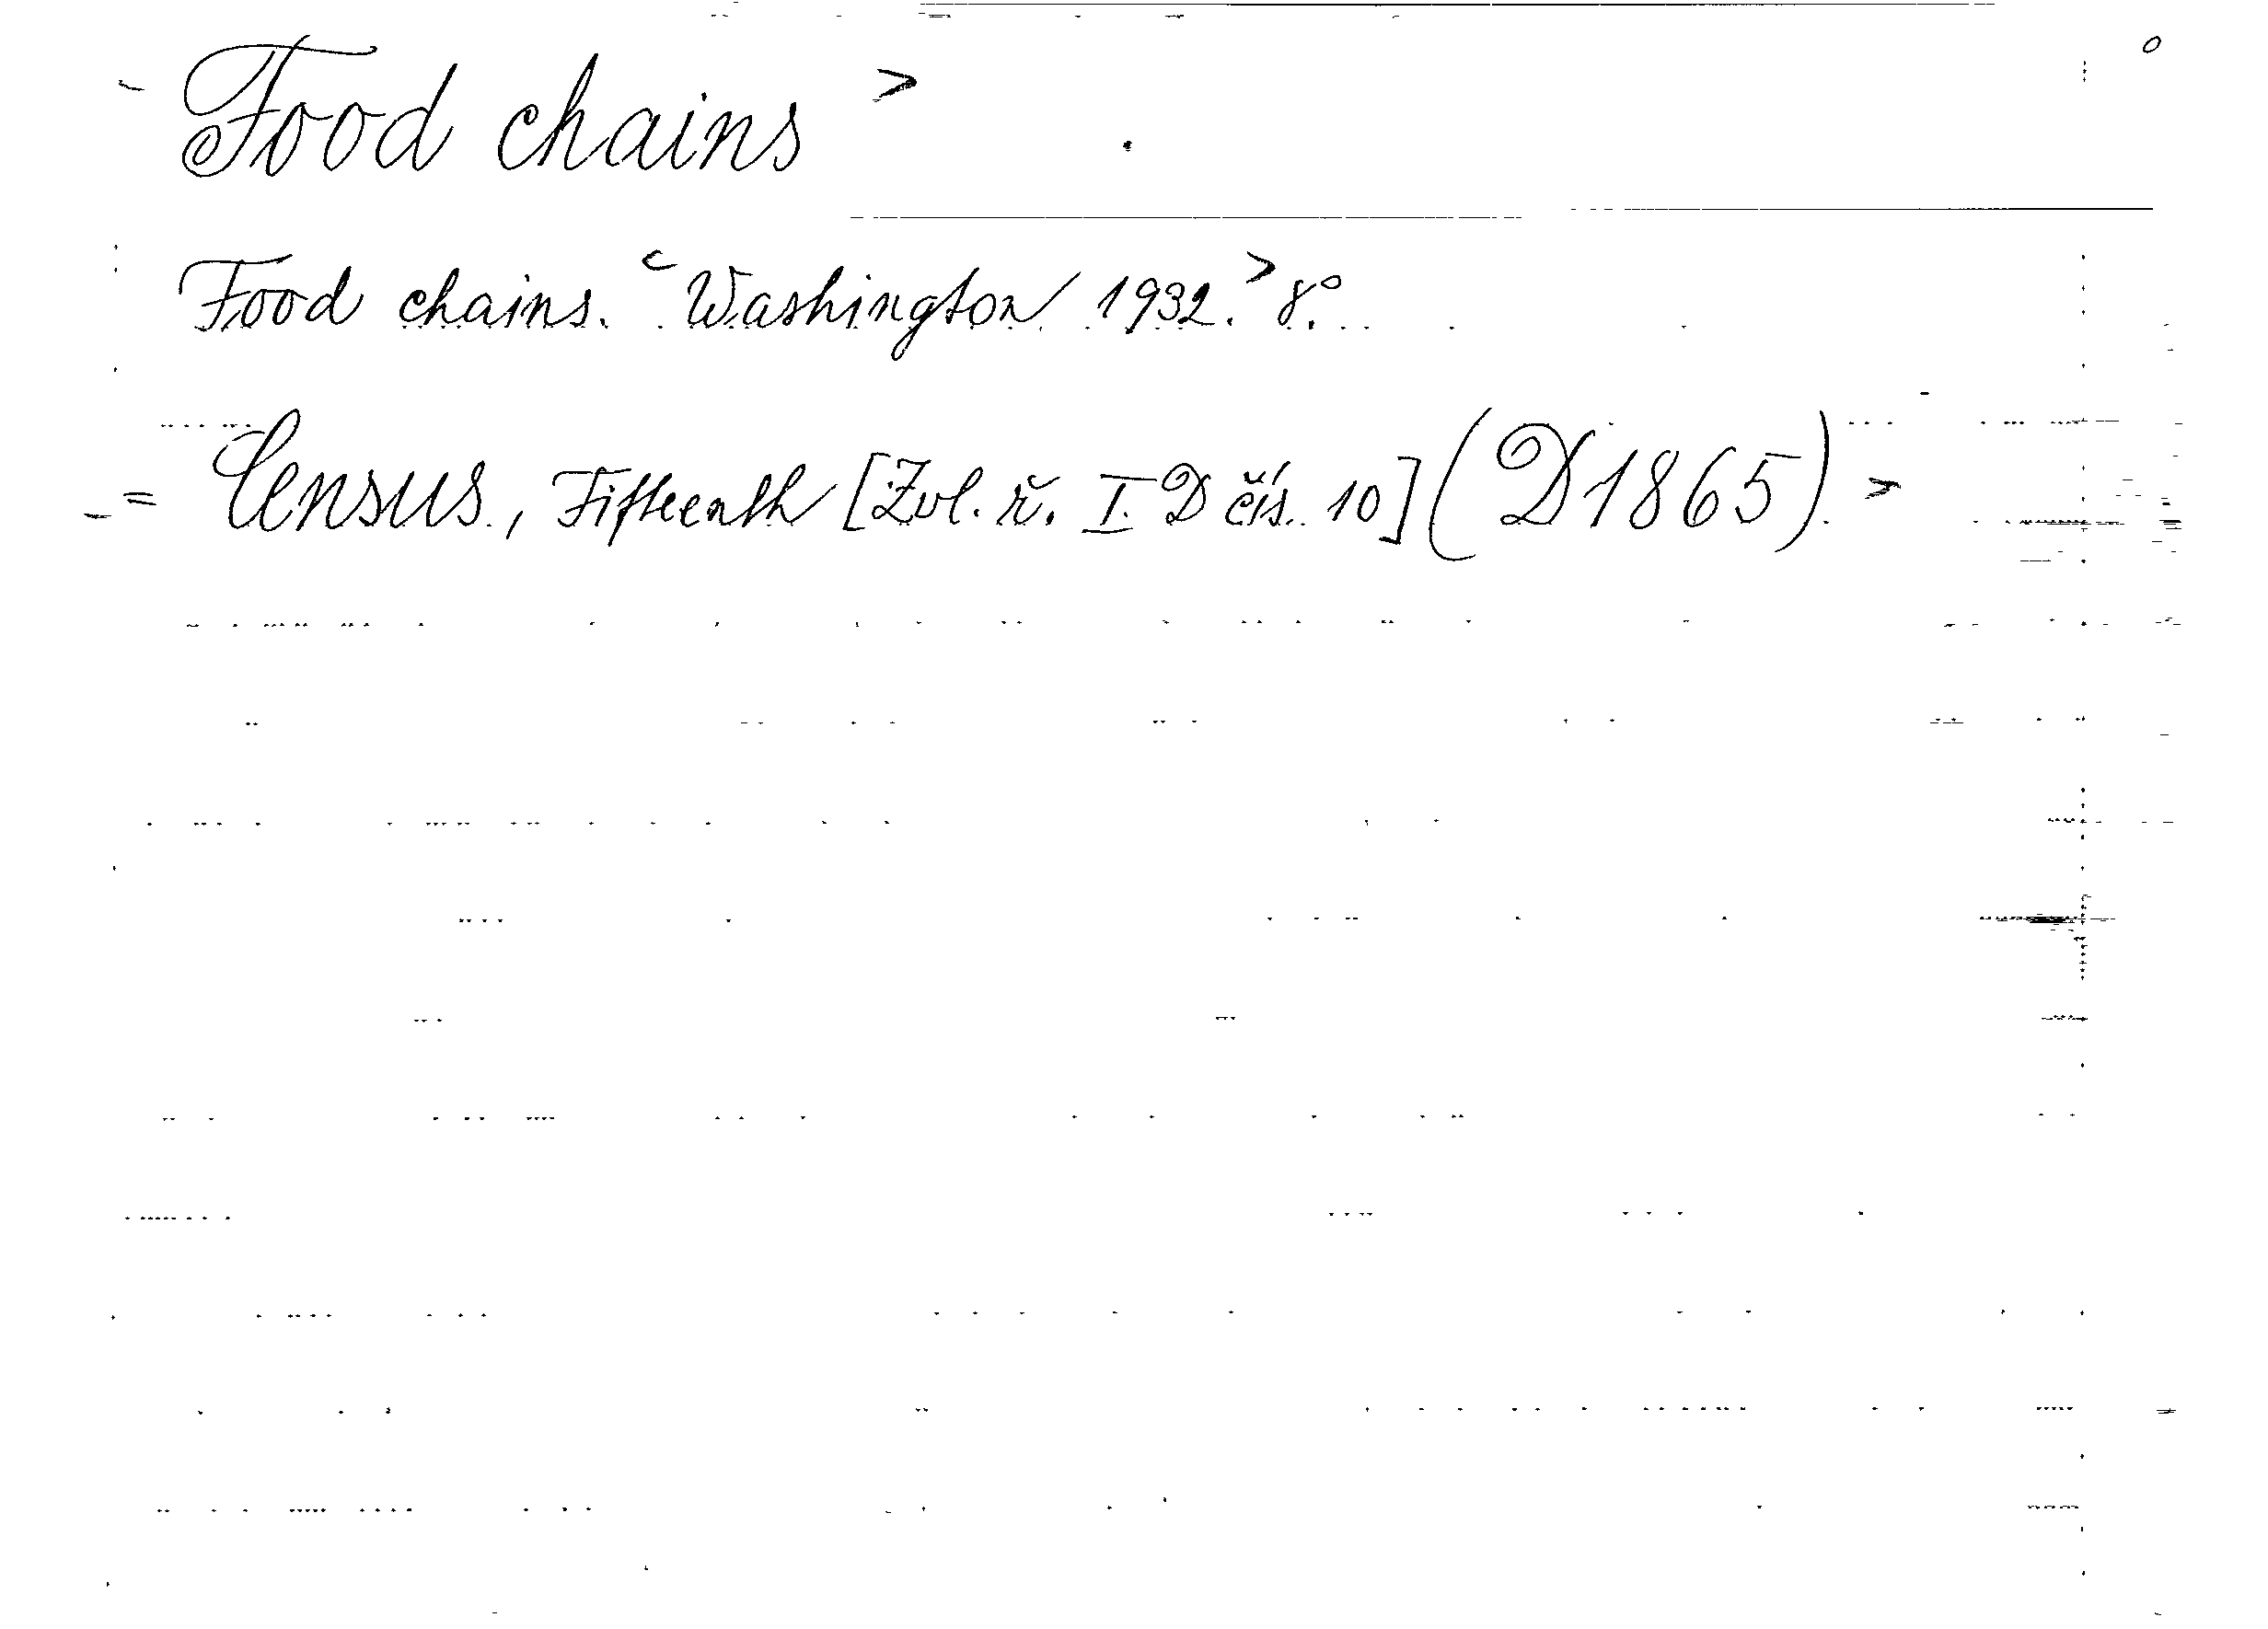 Food chains >
Food chains. < Washington 1932. > 8°.
= Census, Fifteenth [Zvl. ř. I. D čís. 10] (D1865) >